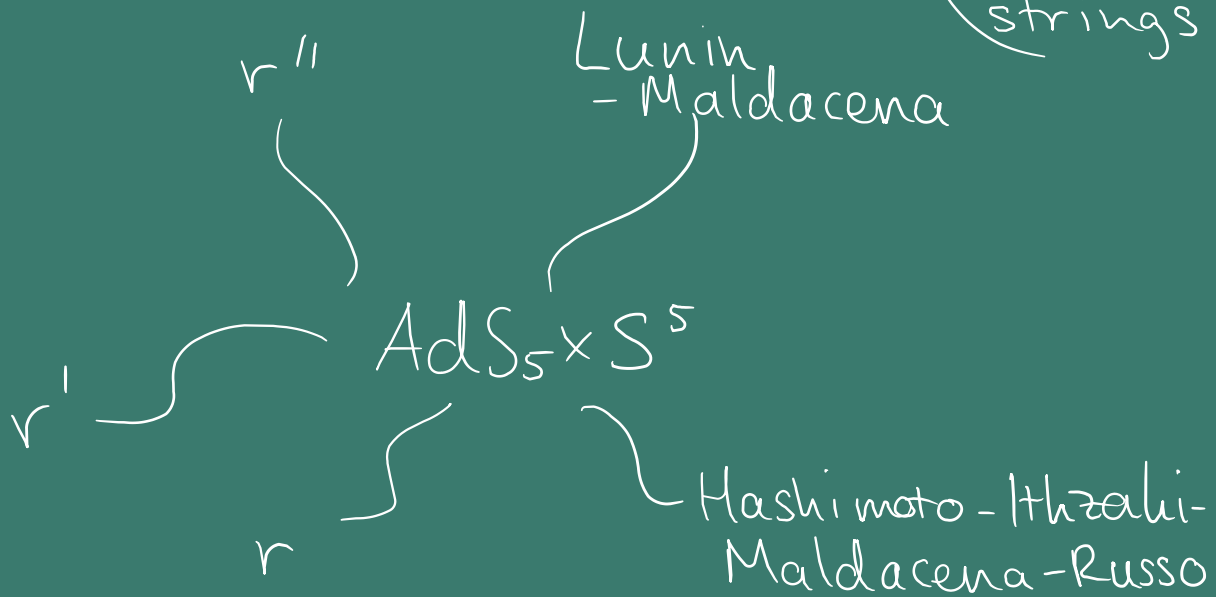 strings
r'' Lunin
-Maldacena
AdS₅×S⁵
r'
Hashimoto-Ithzaki-
r Maldacena-Russo